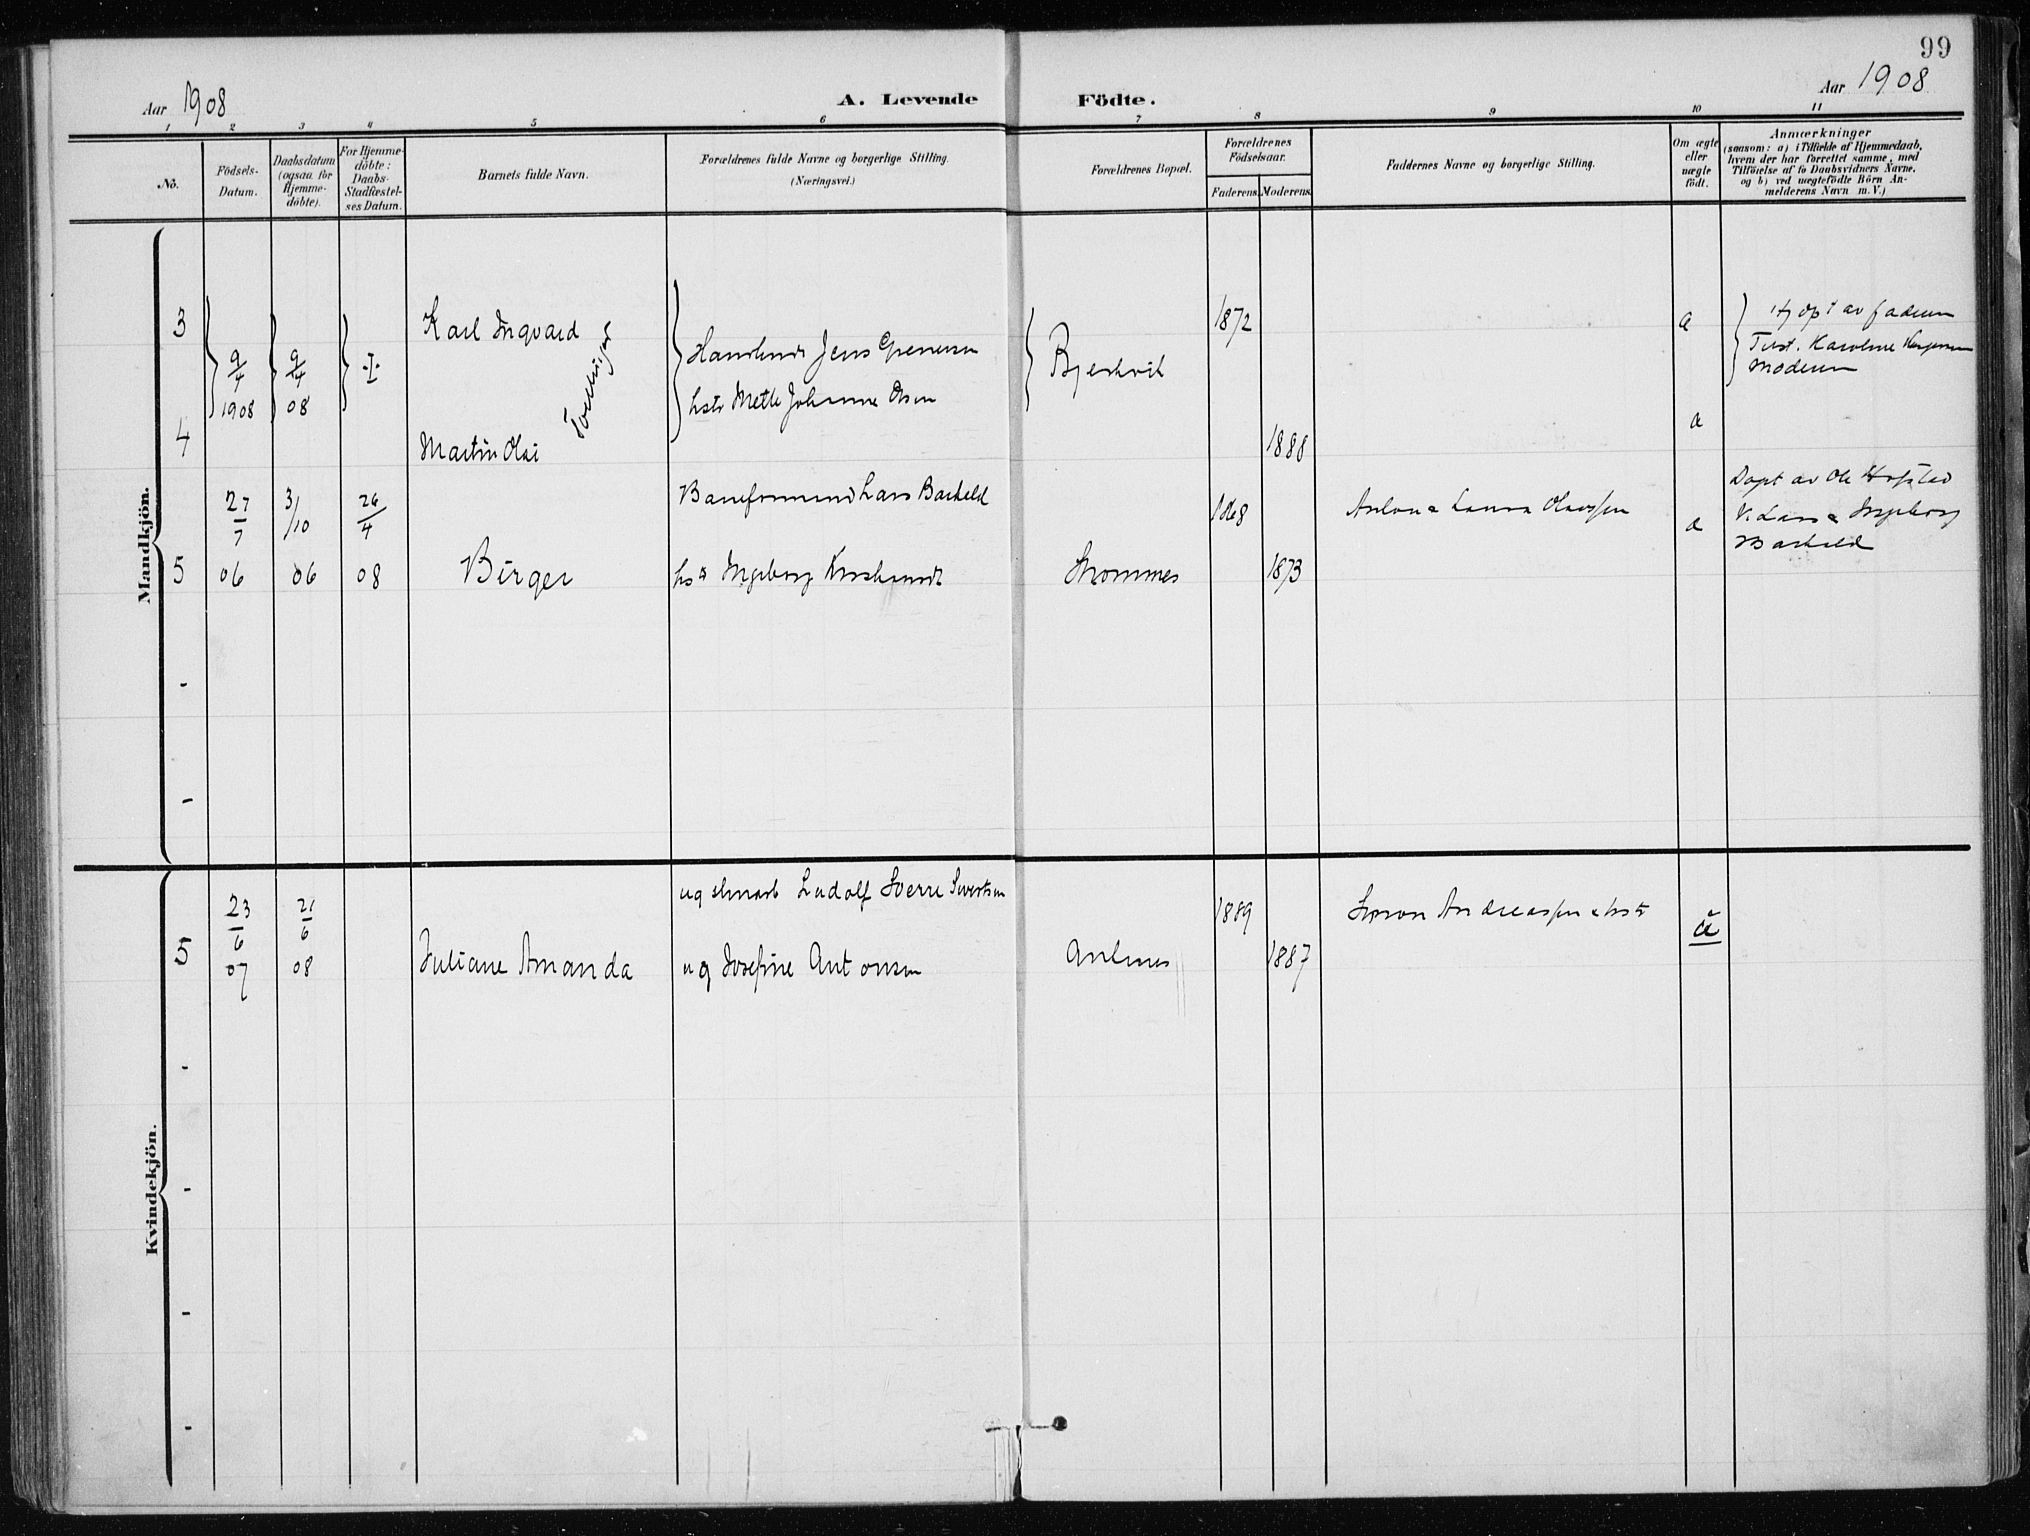 99
Aar 1908
A. Levende Födte.
Aar 1908
1 2 3 4 5 6 7 8 9 10 11
No.
Födsels-
Datum.
Daabsdatum
(ogsaa for
Hjemme-
döbte).
For Hjemme-
döbte:
Daabs-
Stadfæstel-
ses Datum.
Barnets fulde Navn.
Forældrenes fulde Navne og borgerlige Stilling.
(Næringsvei.)
Forældrenes Bopæl.
Forældrenes
Födselsaar.
Faderens. Moderens.
Faddernes Navne og borgerlige Stilling.
Om ægte
eller
uægte
født.
Anmærkninger
(saasom: a) i Tilfælde af Hjemmedaab,
hvem der har forrettet samme, med
Tilföielse af to Daabsvidners Navne,
og b) ved uægtefödte Börn An-
melderens Navn m. V.)
Mandkjön.
3
9/4 1908
9/4 08
Karl Ingvard
Tvillinger
Jens
hstr Mette Johanne Olsen
Bjerkvik
1872
a
av faderen
Karoline
Moderen
4
Martin Olai
1888
a
5
27/7 06
3/10 06
26/4 08
Birger
Lars
hstr Ingeborg
1868
1873
Anton & Laura
a
Døpt av Ole
V. Lars & Ingeborg
-
-
Kvindekjön.
5
23/6 07
21/6 08
Juliane Amanda
ug Ludolf Sverre Sivertsen
ug Josefine Antonsen
1889
1887
Andreassen & hstr
-
-
-
-